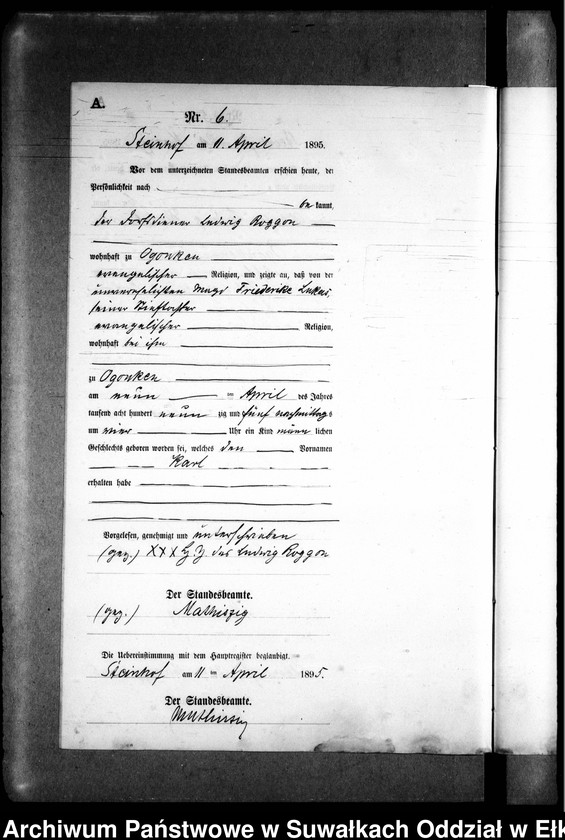 A.
Nr. 6.
Steinhof am 11 April 1895.
Vor dem unterzeichneten Standesbeamten erschien heute, der
Persönlichkeit nach
be kannt,
der Dorfsdiener Ludwig Roggon
wohnhaft zu Ogonken
evangelischer Religion, und zeigte an, daß von der
unverehelichten Magd Friederike Lukas,
seiner Stieftochter
evangelischer Religion,
wohnhaft bei ihm
zu Ogonken
am neun ten April des Jahres
tausend acht hundert neun zig und fünf nachmittags
um vier Uhr ein Kind männ lichen
Geschlechts geboren worden sei, welches den Vornamen
Karl
erhalten habe
Vorgelesen, genehmigt und unterschrieben
(gez.) XXX H. Z. des Ludwig Roggon
Der Standesbeamte.
(gez.) Mathiszig
Die Uebereinstimmung mit dem Hauptregister beglaubigt.
Steinhof am 11 ten April 1895.
Der Standesbeamte.
Mathiszig
Archiwum Państwowe w Suwałkach Oddział w Ełk